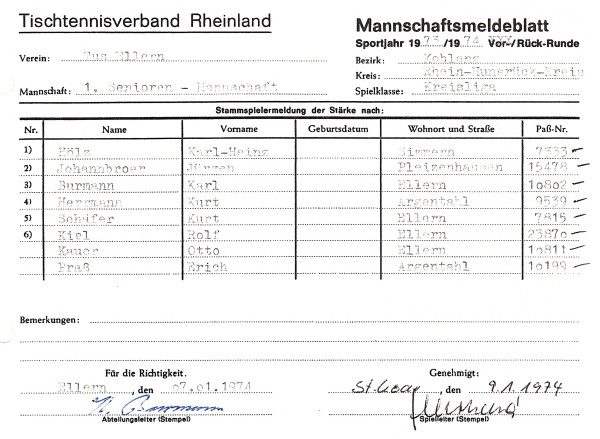 Tischtennisverband Rheinland
Mannschaftsmeldeblatt
Sportjahr 1973/1974 Vor-/Rück-Runde
Verein: Tus Ellern
Bezirk: Koblenz
Kreis: Rhein-Hunsrück-Kreis
Mannschaft: 1. Senioren - Mannschaft
Spielklasse: Kreisliga
Stammspielermeldung der Stärke nach:
Nr. Name Vorname Geburtsdatum Wohnort und Straße Paß-Nr.
1) Hölz Karl-Heinz Simmern 7333
2) Johannbroer Jürgen Pleizenhausen 15478
3) Burmann Karl Ellern 10802
4) Herrmann Kurt Argentahl 9539
5) Schäfer Kurt Ellern 7815
6) Kiel Rolf Ellern 23870
Kauer Otto Ellern 10811
Praß Erich Argentahl 10199
Bemerkungen:
Für die Richtigkeit. Genehmigt:
Ellern, den 07.01.1974 St. Goar, den 9.1.1974
K. Burmann
Abteilungsleiter (Stempel) Spielleiter (Stempel)